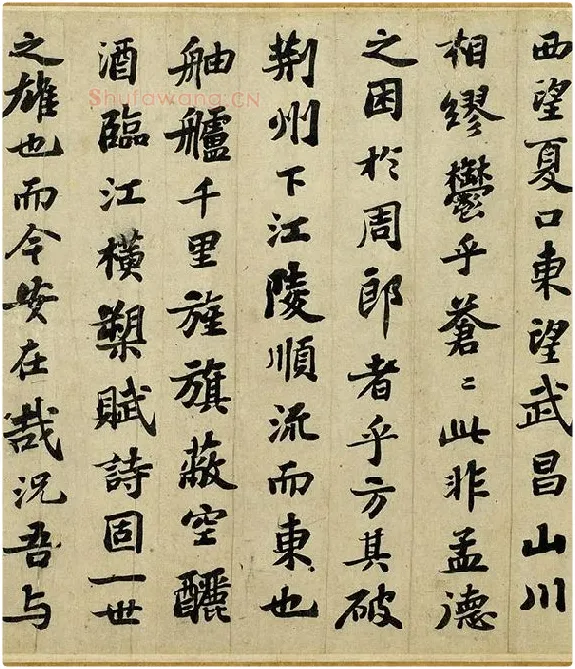 西望夏口東望武昌山川
相繆鬱乎蒼〻此非孟德
之困於周郎者乎方其破
荆州下江陵順流而東也
舳艫千里旌旗蔽空釃
酒臨江橫槊賦詩固一世
之雄也而今安在哉況吾与
Shufawang.CN